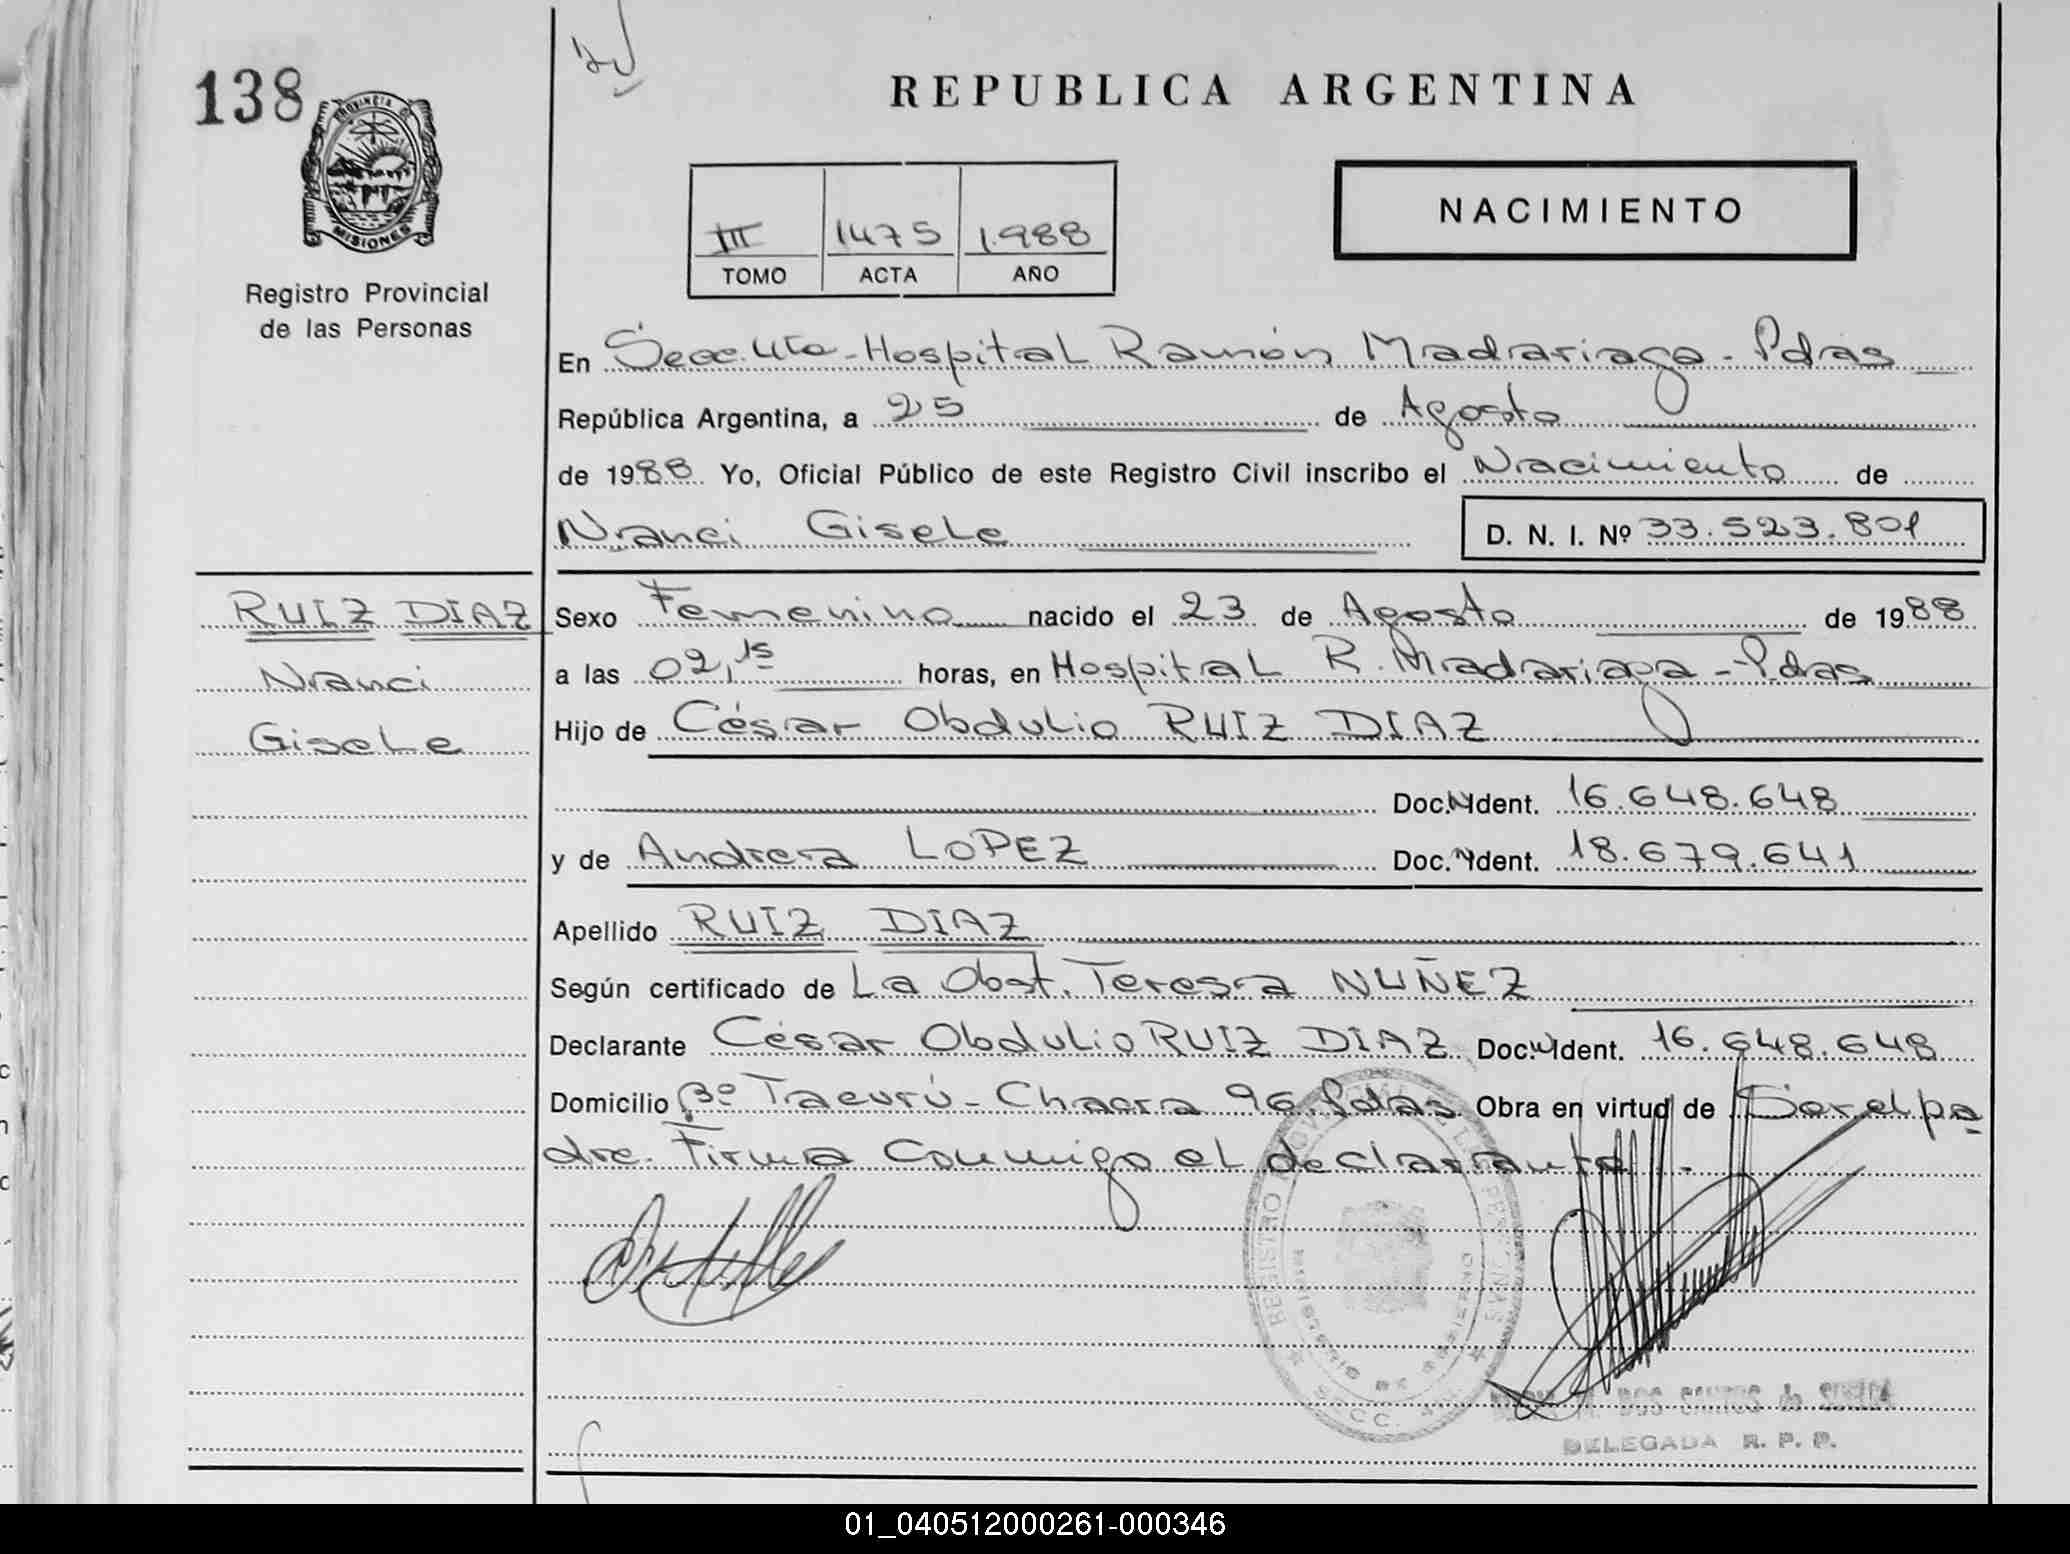 138
PROVINCIA DE
MISIONES
Registro Provincial
de las Personas
REPUBLICA ARGENTINA
III 1475 1.988
TOMO ACTA AÑO
NACIMIENTO
En Secc. 4ta - Hospital Ramón Madariaga - Pdas
República Argentina, a 25 de Agosto
de 1988 Yo, Oficial Público de este Registro Civil inscribo el Nacimiento de
Nanci Gisele D. N. I. Nº 33.523.801
RUIZ DIAZ
Nanci
Gisele
Sexo Femenino nacido el 23 de Agosto de 1988
a las 02,15 horas, en Hospital R. Madariaga - Pdas
Hijo de César Obdulio RUIZ DIAZ
Doc. Ident. 16.648.648
y de Andrea LOPEZ Doc. Ident. 18.679.641
Apellido RUIZ DIAZ
Según certificado de La Obst. Teresa NUÑEZ
Declarante César Obdulio RUIZ DIAZ Doc. Ident. 16.648.648
Domicilio Bº Tacurú - Chacra 96. Pdas Obra en virtud de Ser el pa
dre. Firma Conmigo el declarante.-
REGISTRO PROVINCIAL DE LAS PERSONAS
MINISTERIO DE GOBIERNO
SECC. 4ta
DOS SANTOS de
DELEGADA R. P. P.
01_040512000261-000346